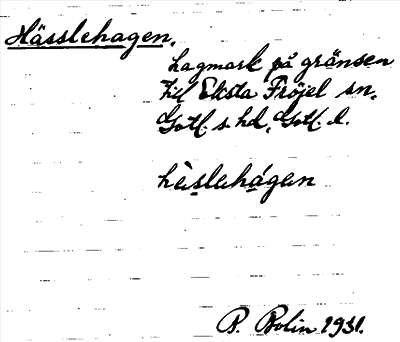 Hässlehagen.
hagmark på gränsen
till Eksta Fröjel sn.
Gotl. s. hd, Gotl. l.
hèslehágen
B. Bolin 1931.